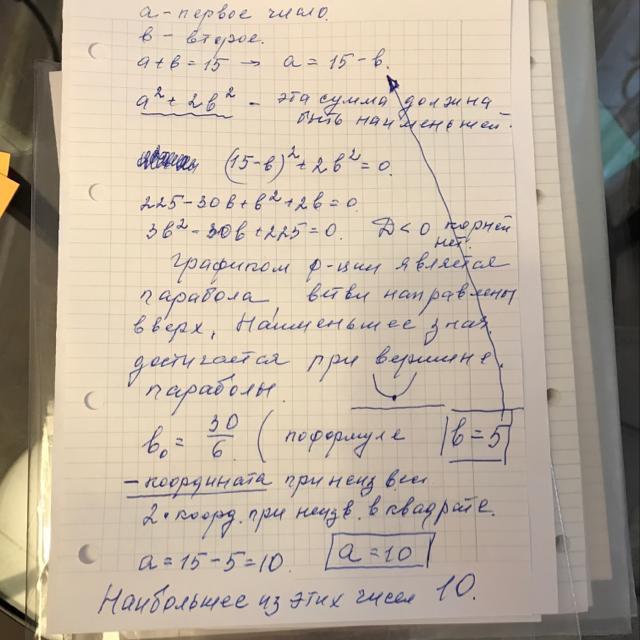 а - первое число.
в - второе.
а + в = 15 → а = 15 - в.
а² + 2в² - эта сумма должна
быть наименьшей.
(15-в)² + 2в² = 0.
225 - 30в + в² + 2в = 0.
3в² - 30в + 225 = 0. D < 0 корней
нет.
графиком ф-ции является
парабола ветви направлены
вверх, Наименьшее знач.
достигается при вершине
параболы.
в₀ = 30/6 ( по формуле в = 5
- координата при неизвест
2 · коорд. при неизв. в квадрате.
а = 15 - 5 = 10. а = 10
Наибольшее из этих чисел 10.